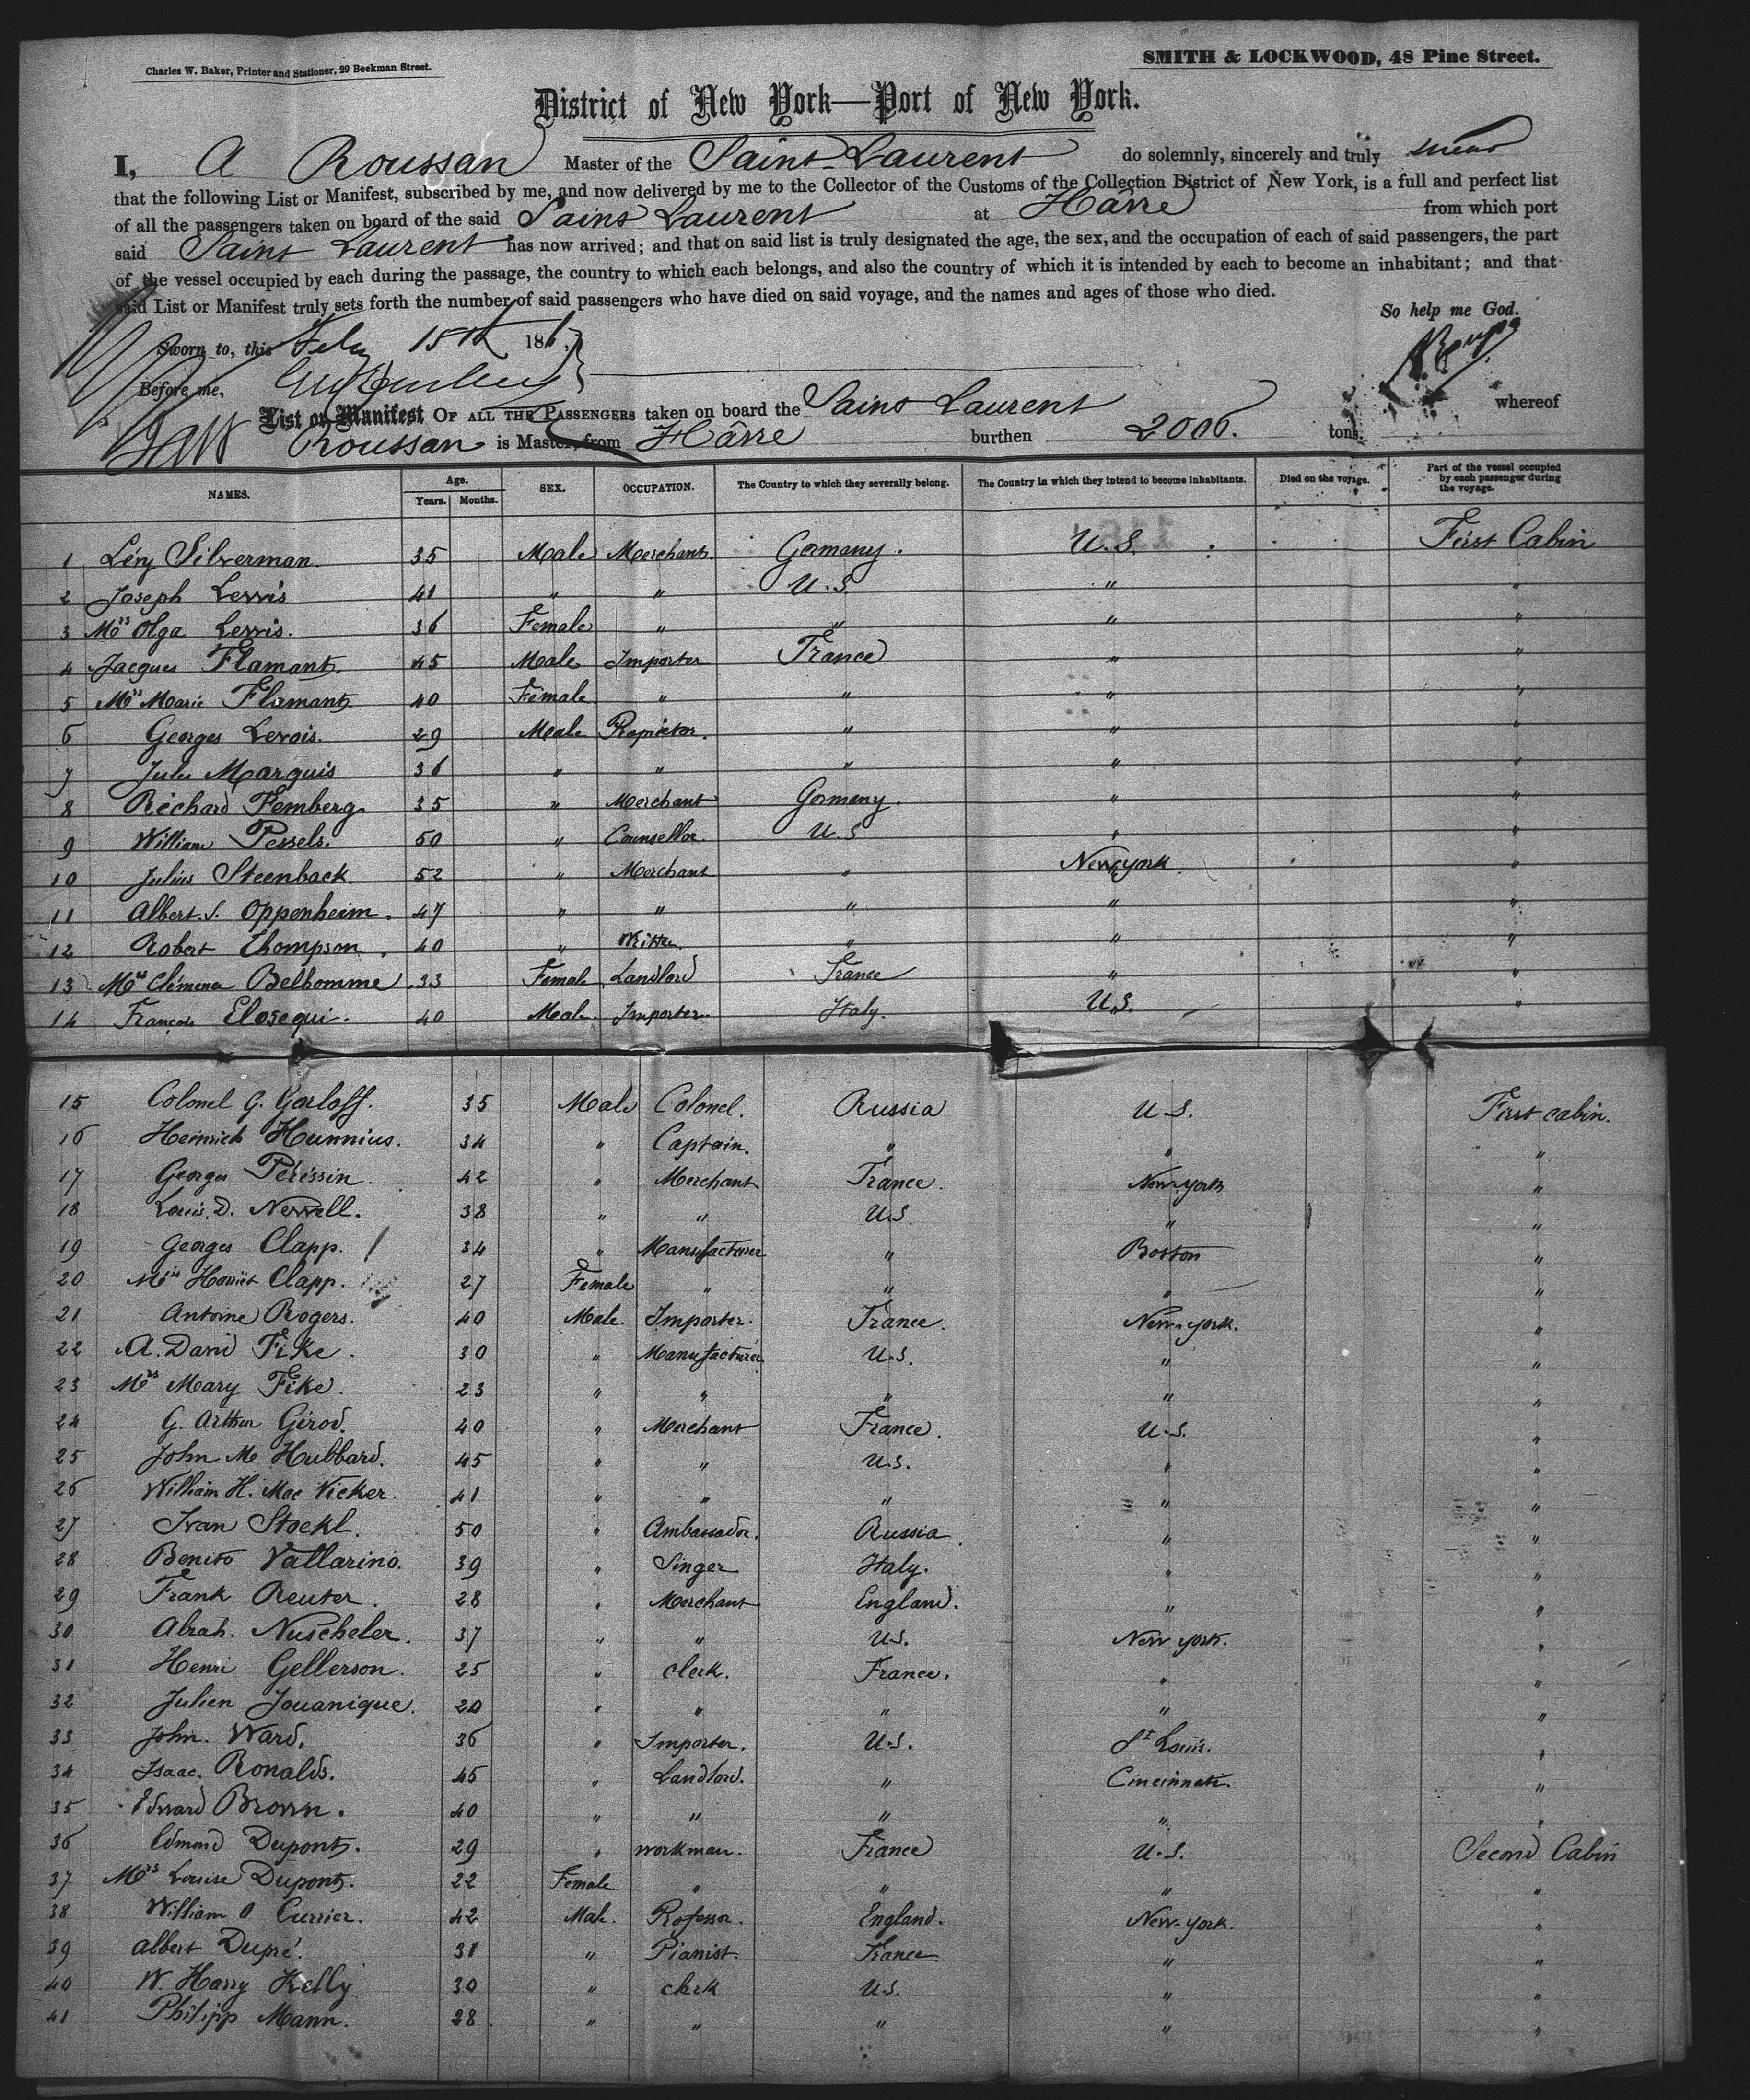 Charles W. Baker, Printer and Stationer, 29 Beekman Street.
SMITH & LOCKWOOD, 48 Pine Street.
District of New York—Port of New York.
I, A Roussan Master of the Saint Laurent do solemnly, sincerely and truly swear
that the following List or Manifest, subscribed by me, and now delivered by me to the Collector of the Customs of the Collection District of New York, is a full and perfect list
of all the passengers taken on board of the said Saint Laurent at Hâvre from which port
said Saint Laurent has now arrived; and that on said list is truly designated the age, the sex, and the occupation of each of said passengers, the part
of the vessel occupied by each during the passage, the country to which each belongs, and also the country of which it is intended by each to become an inhabitant; and that
said List or Manifest truly sets forth the number of said passengers who have died on said voyage, and the names and ages of those who died.
So help me God.
Sworn to, this Feby 15th 186
Before me,
List or Manifest OF ALL THE PASSENGERS taken on board the Saint Laurent whereof
Roussan is Master, from Hâvre burthen 2000. tons
NAMES. Age. Years. Months. SEX. OCCUPATION. The Country to which they severally belong. The Country in which they intend to become inhabitants. Died on the voyage. Part of the vessel occupied by each passenger during the voyage.
1 Lévy Silverman. 35 Male Merchant. Germany. U.S. First Cabin
2 Joseph Lewis 41 " " U.S. " "
3 Mrs Olga Lewis. 36 Female " " " "
4 Jacques Flamant. 45 Male Importer France " "
5 Mrs Marie Flamant. 40 Female " " " "
6 Georges Lerois. 29 Male Proprietor. " " "
7 Jules Marquis 36 " " " " "
8 Richard Femberg. 35 " Merchant Germany. " "
9 William Pessels. 50 " Counsellor. U.S " "
10 Julius Steenback. 52 " Merchant " New york. "
11 Albert. S. Oppenheim. 47 " " " " "
12 Robert Thompson. 40 " Writter. " " "
13 Mrs Clémence Belhomme 33 Female Landlord France " "
14 François Elosegui. 40 Male. Importer. Italy. U.S. "
15 Colonel G. Gorloff. 35 Male Colonel. Russia U.S. First cabin.
16 Heinrich Hunnius. 34 " Captain. " " "
17 Georges Périssin. 42 " Merchant France. New-york "
18 Louis. D. Newell. 38 " " U.S. " "
19 Georges Clapp. 34 " Manufacturer " Boston "
20 Harriet Clapp. 27 Female " " " "
21 Antoine Rogers. 40 Male. Importer. France. New-york. "
22 A. David Fike. 30 " Manufacturer U.S. " "
23 Mrs Mary Fike. 23 " " " " "
24 G. Arthur Girod. 40 " Merchant France. U.S. "
25 John Mc Hubbard. 45 " " U.S. " "
26 William H. Mac Vicker. 41 " " " " "
27 Ivan Stoekl. 50 " Ambassador. Russia " "
28 Benito Vallarino. 39 " Singer Italy. " "
29 Frank Reuter. 28 " Merchant England. " "
30 Abrah. Nuscheler. 37 " " U.S. New york. "
31 Henri Gellerson. 25 " clerk. France. " "
32 Julien Jouanique. 20 " " " " "
33 John. Ward. 36 " Importer. U.S. St Louis. "
34 Isaac. Ronalds. 45 " Landlord. " Cincinnati. "
35 Edward Brown. 40 " " " " "
36 Edmond Dupont. 29 " workman. France U.S. Second Cabin
37 Mrs Louise Dupont. 22 Female " " " "
38 William O Currier. 42 Male. Professor. England. New-york. "
39 Albert Dupré. 31 " Pianist. France " "
40 W. Harry Kelly 30 " clerk U.S. " "
41 Philipp Mann. 28 " " " " "